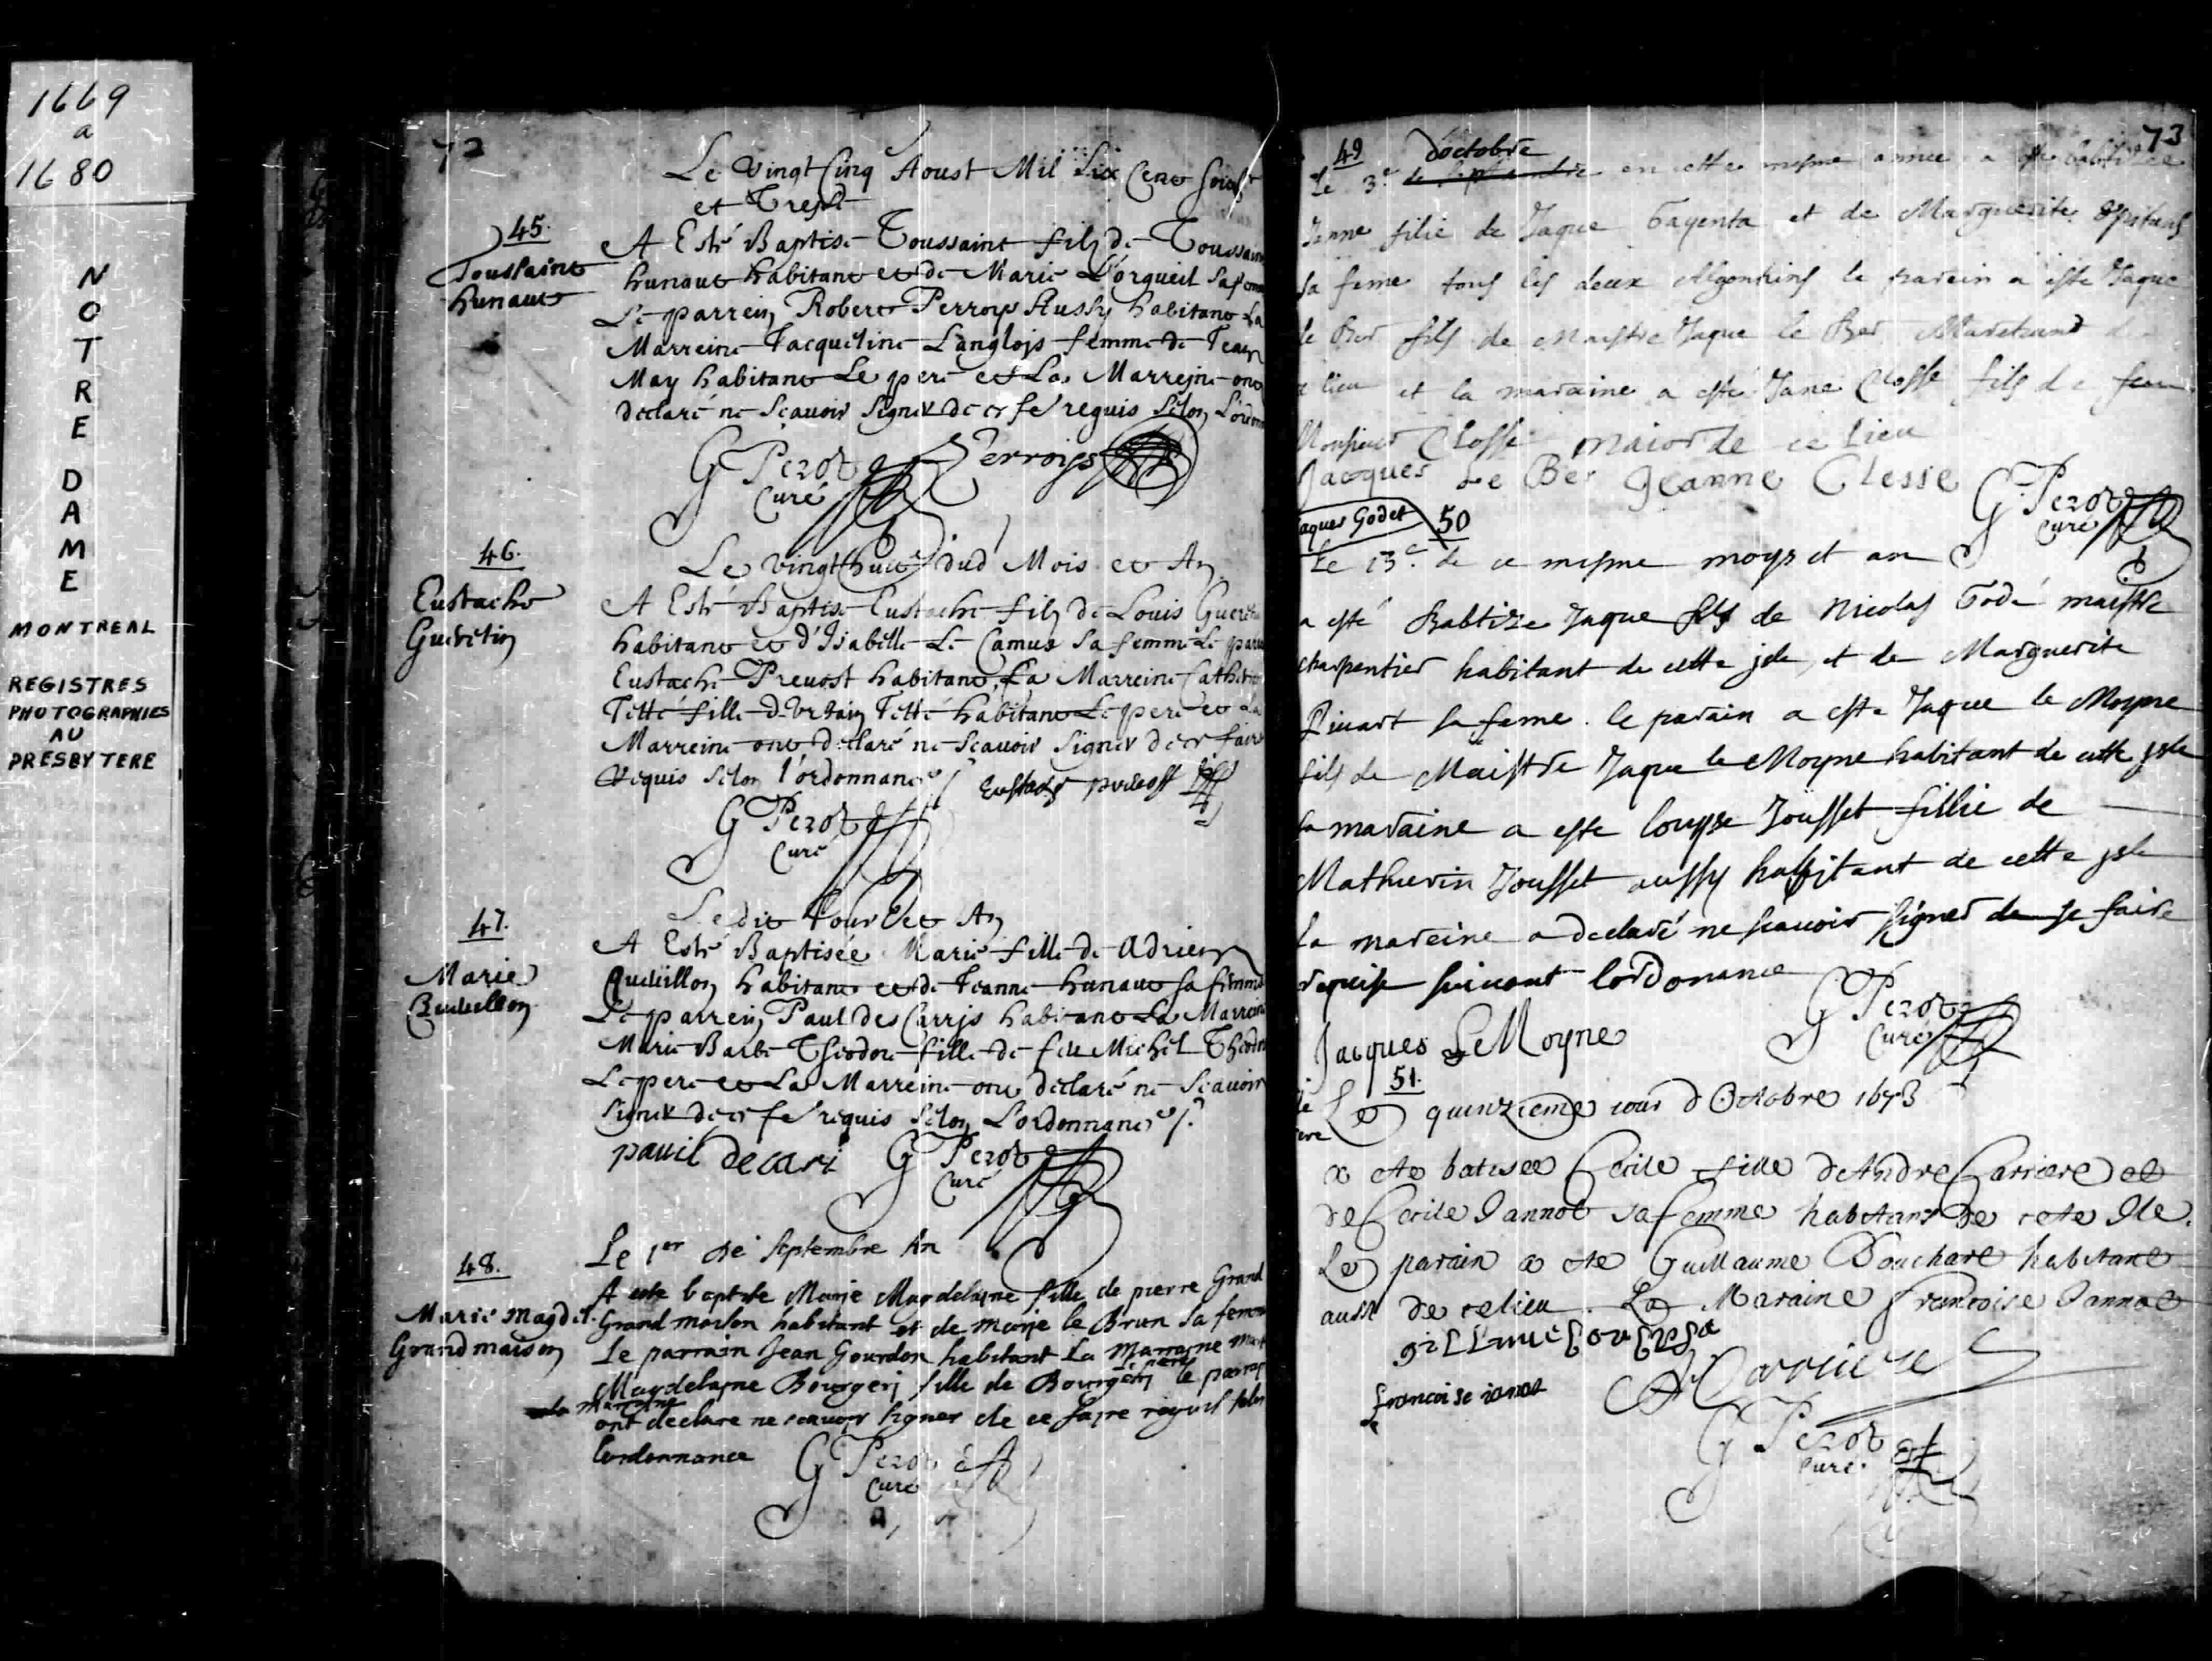 1669
a
1680
NOTRE DAME
MONTREAL
REGISTRES
PHOTOGRAPHIES
AU
PRESBYTERE
72
Le Vingt Cinq Aoust Mil Six Cent Soix
et Trese
45.
Toussaint
hunault
A Esté Baptisé Toussaint filz de Toussain
hunault habitant et de Marie Lorgueil Sa femme
Le parrein Robert Perroys Aussy habitant La
Marreine Jacqueline Langlojs femme de Jean
May habitant Le pere et La Marrejne ont
declaré ne Scavoir Signer de ce fe requis Selon Lordonn
G Perot Perroijs
Curé
46.
Eustache
Gueretin
Le Vingt huit dud Mois et An
A Esté Baptisé Eustache filz de Louis Guereti
habitant et d'Isabelle Le Camus Sa femme Le parre
Eustache Prevost habitant, La Marreine Catherine
Tetté fille d'Urbain Tetté habitant Le pere et La
Marreine ont declaré ne Scavoir Signer de ce faire
Requis Selon l'ordonnance
G Perot
Curé
47.
Marie
Queuillon
Ledit Jour et An
A Esté Baptisée Marie fille de Adrien
Queuillon habitant et de Jeanne hunault sa femme
Le parrein Paul des Carrjs habitant La Marreine
Marie Barbe Theodore fille de feu Michel Theodore
Le pere et La Marreine ont declaré ne Scavoir
Signer de ce fe requis Selon Lordonnance
pauil decari G Perot
Curé
48.
Marie Magdel.
Grandmaison
Le 1er de Septembre An
A este baptise Marie Magdelayne fille de pierre Grand
Grand maison habitant et de Marie le Brun Sa femme
Le parrain Jean Gourdon habitant La Marrayne
Magdelayne Bourgerj fille de Bourgerj le pere le parrain
la marraine
ont declare ne scauoir signer de ce fayre requis selon
Lordonnance
G Perot
Curé
73
49
d'octobre
Le 3e de Septembre en cette mesme annee a este babtizee
Janne filie de Jaque Gayenta et de Marguerite
Sa feme tous les deux Algonkins le parein a este Jaque
le Ber fils de Maistre Jaque le Ber Marchand d
ce lieu et la maraine a esté Jane Closse fils de feu
Monsieur Closse maior de ce lieu
Jacques Le Ber Jeanne Closse
G Perot
Curé
Jaques Godet
50
Le 13e de ce mesme moys et an
a esté Babtize Jaque fils de Nicolas Godé maistre
charpentier habitant de cette jsle, et de Marguerite
Picart sa feme. le parain a este Jaque le Moyne
fils de Maistre Jaque le Moyne habitant de cette jsle
la maraine a este Louyse Jousset fillie de
Mathurin Jousset aussy habitant de cette jsle
la mareine a declaré ne scauoir signer de se faire
requise suiuant lordonance
Jacques LeMoyne G Perot
Curé
51.
Le quinzieme iour d Octobre 1673
a ete batisee Cecile fille de Andre Carriere et
de Cecile Jannot sa femme habitans de cete Ile.
Le parain a ete Guillaume Bouchart habitant
aussi de ce lieu. La Maraine Francoise Jannot
A Carriere
francoise ianot
G Perot
Curé